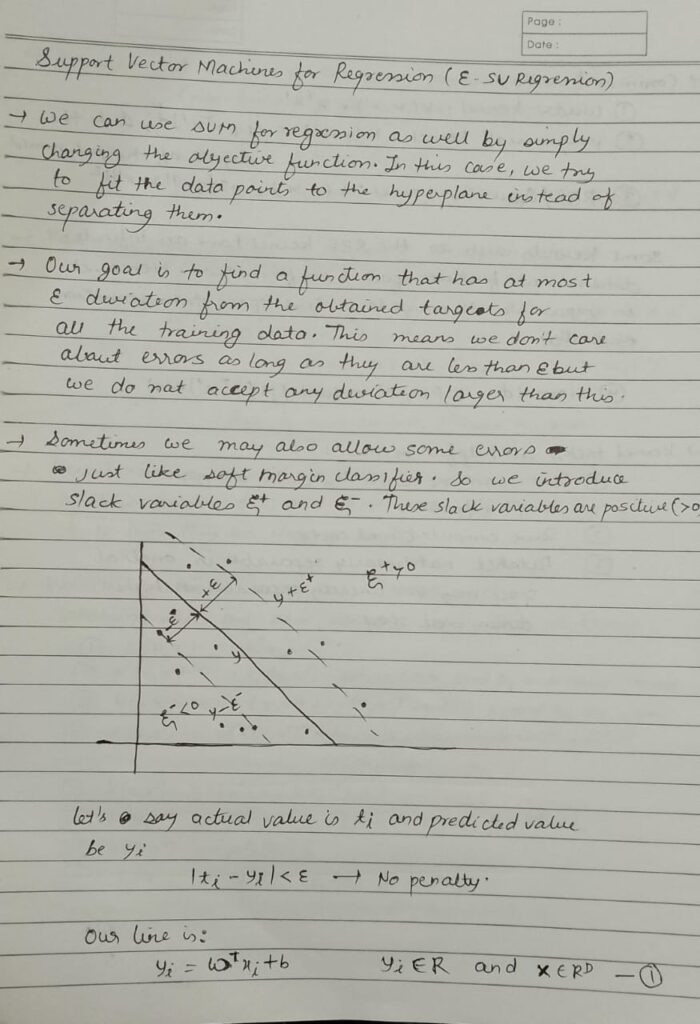 Page :
Date :
Support Vector Machines for Regression (ε-SV Regression)
→ We can use SVM for regression as well by simply
changing the objective function. In this case, we try
to fit the data points to the hyperplane instead of
separating them.
→ Our goal is to find a function that has at most
ε deviation from the obtained targets for
all the training data. This means we don't care
about errors as long as they are less than ε but
we do not accept any deviation larger than this.
→ Sometimes we may also allow some errors
just like soft margin classifier. So we introduce
slack variables ξ⁺ and ξ⁻. These slack variables are positive (>0
+ε
y+ε⁺
ξ⁺>0
-ε
y
ξ⁻<0
y-ε⁻
Let's say actual value is tᵢ and predicted value
be yᵢ
|tᵢ - yᵢ| < ε → No penalty.
Our line is:
yᵢ = wᵀxᵢ+b yᵢ ∈ R and x ∈ Rᴰ — ①